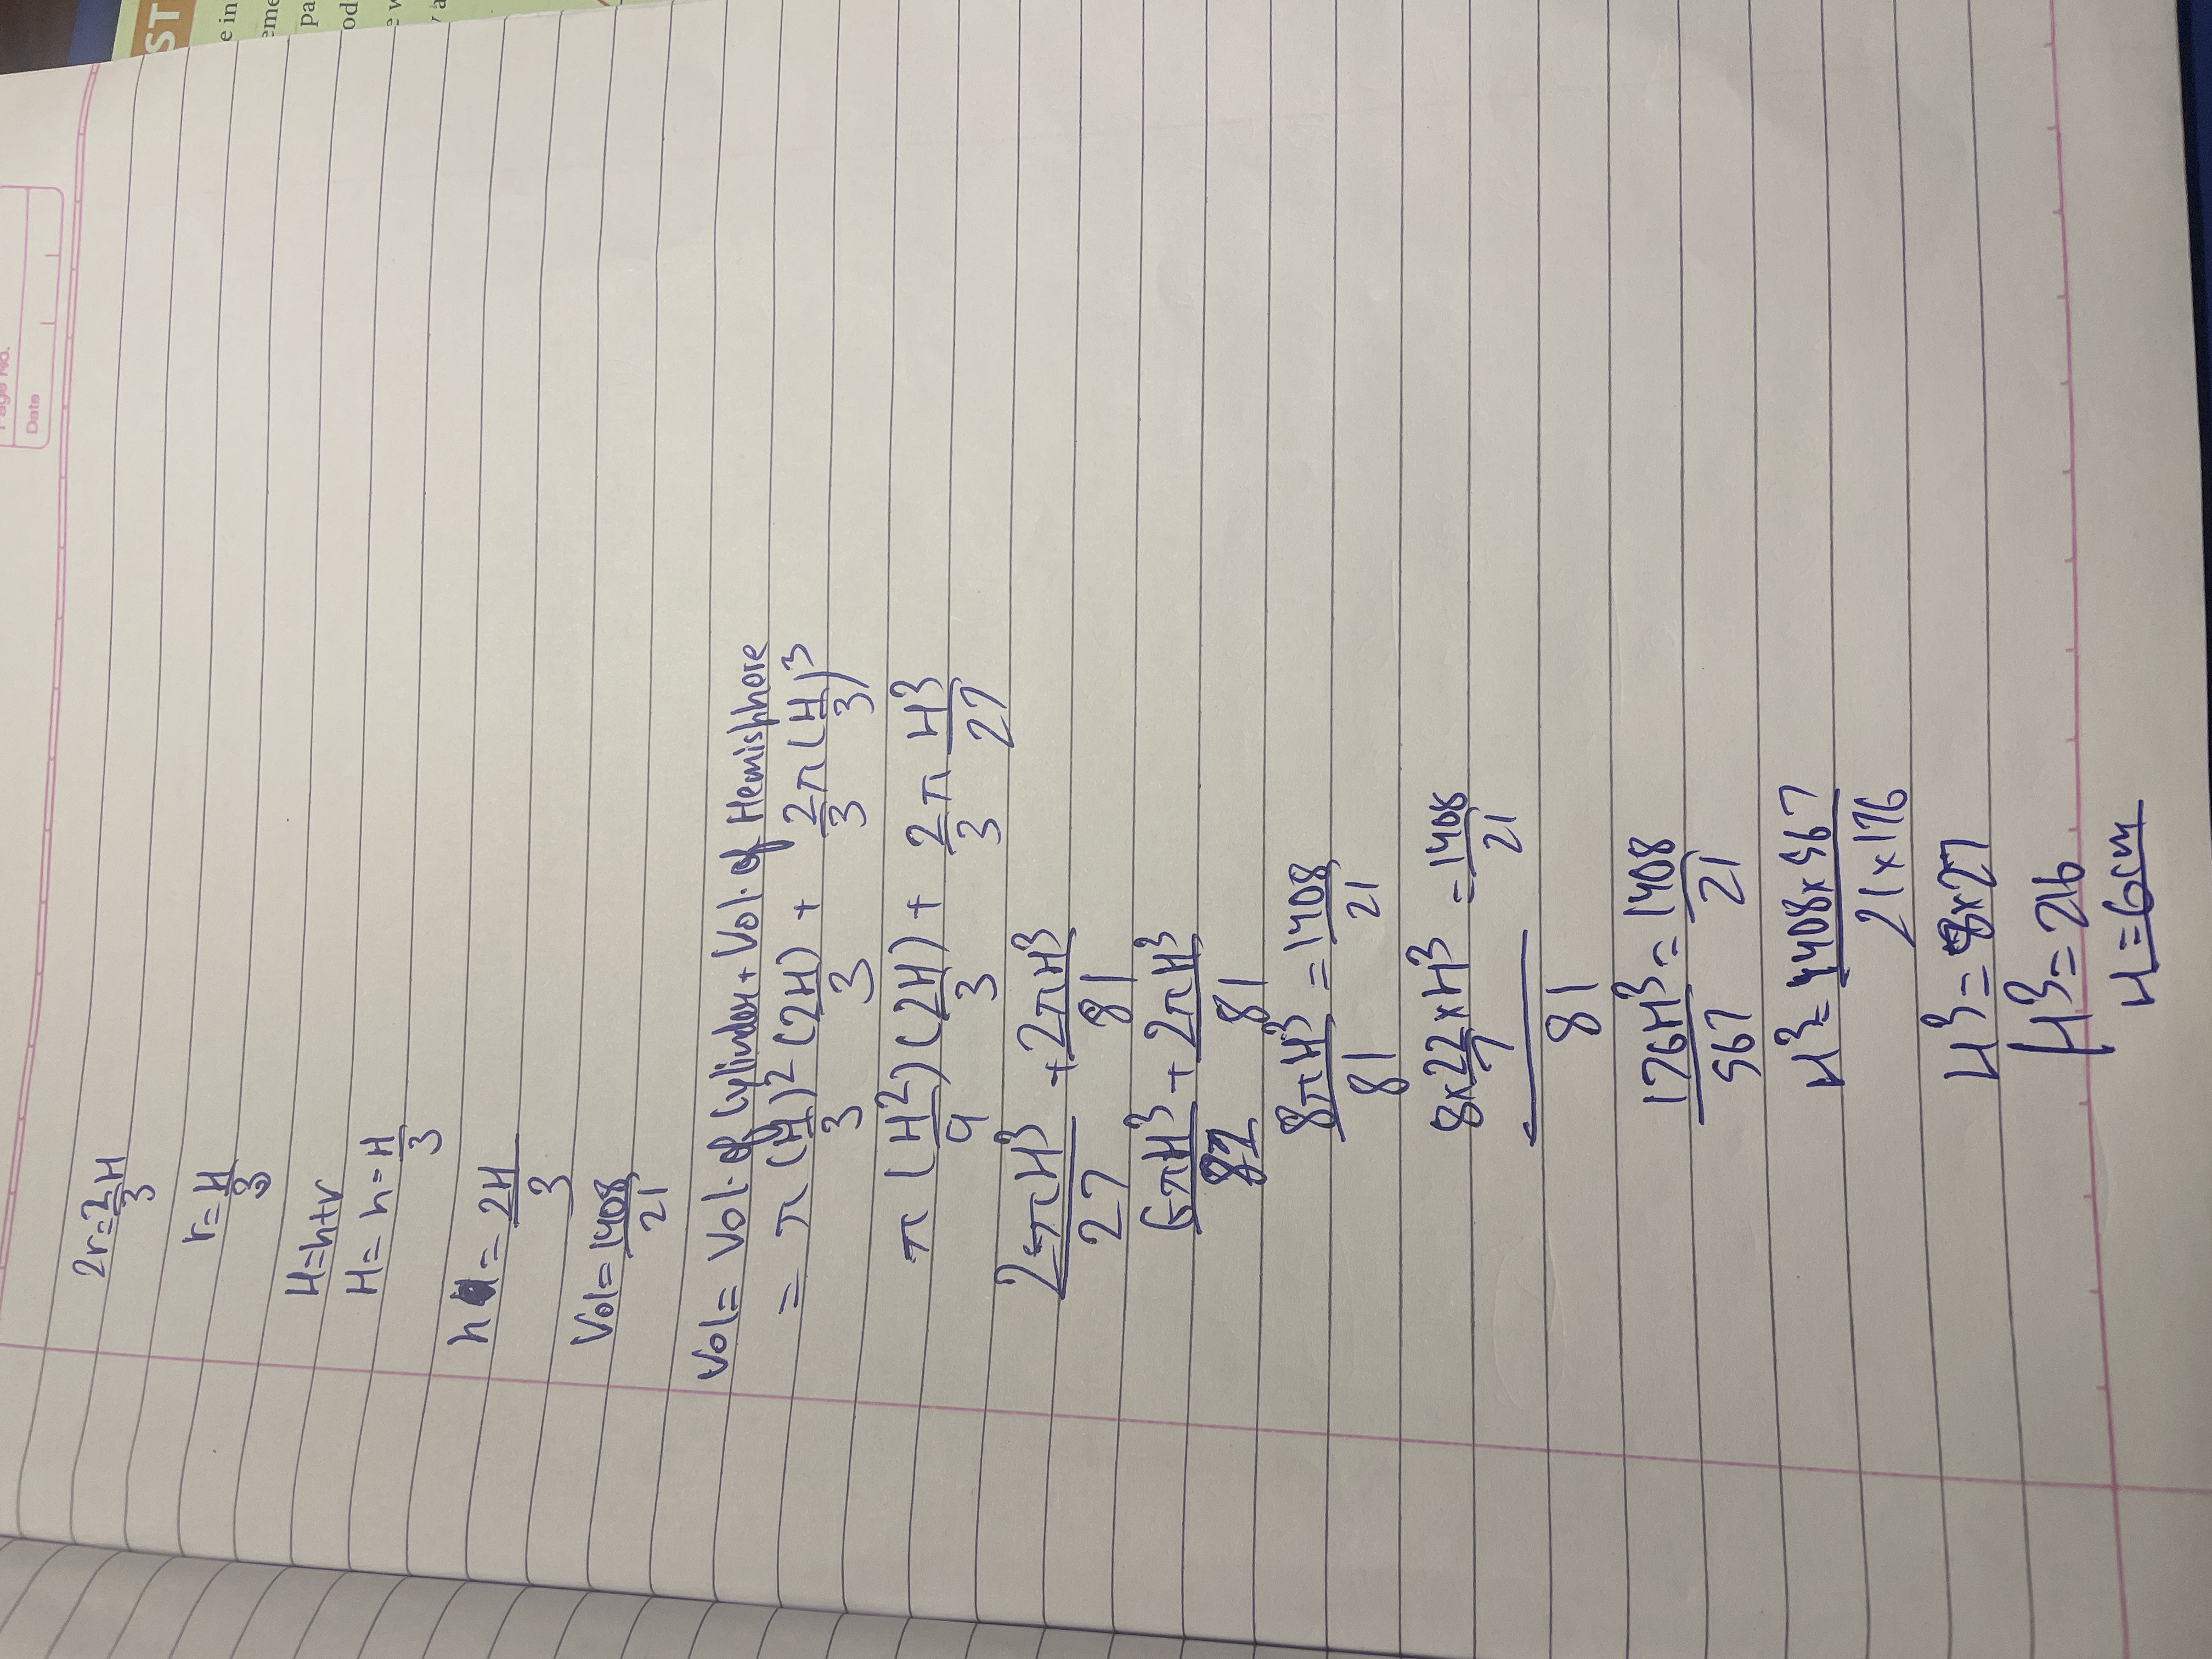 Page No.
Date
ST
e in
eme
pa
od
2r = 2/3 H
r = H/3
H = h + r
H = h = H/3
h = 2H/3
Vol = 1408/21
Vol = Vol. of Cylinder + Vol. of Hemishhore
= π (H/3)² (2H/3) + 2/3 π (H/3)³
π (H²/9) (2H/3) + 2/3 π H³/27
2πH³/27 + 2πH³/81
6πH³/81 + 2πH³/81
8πH³/81 = 1408/21
8 × 22/7 × H³ / 81 = 1408/21
176H³/567 = 1408/21
H³ = 1408 × 567 / 21 × 176
H³ = 8 × 27
H³ = 216
H = 6cm